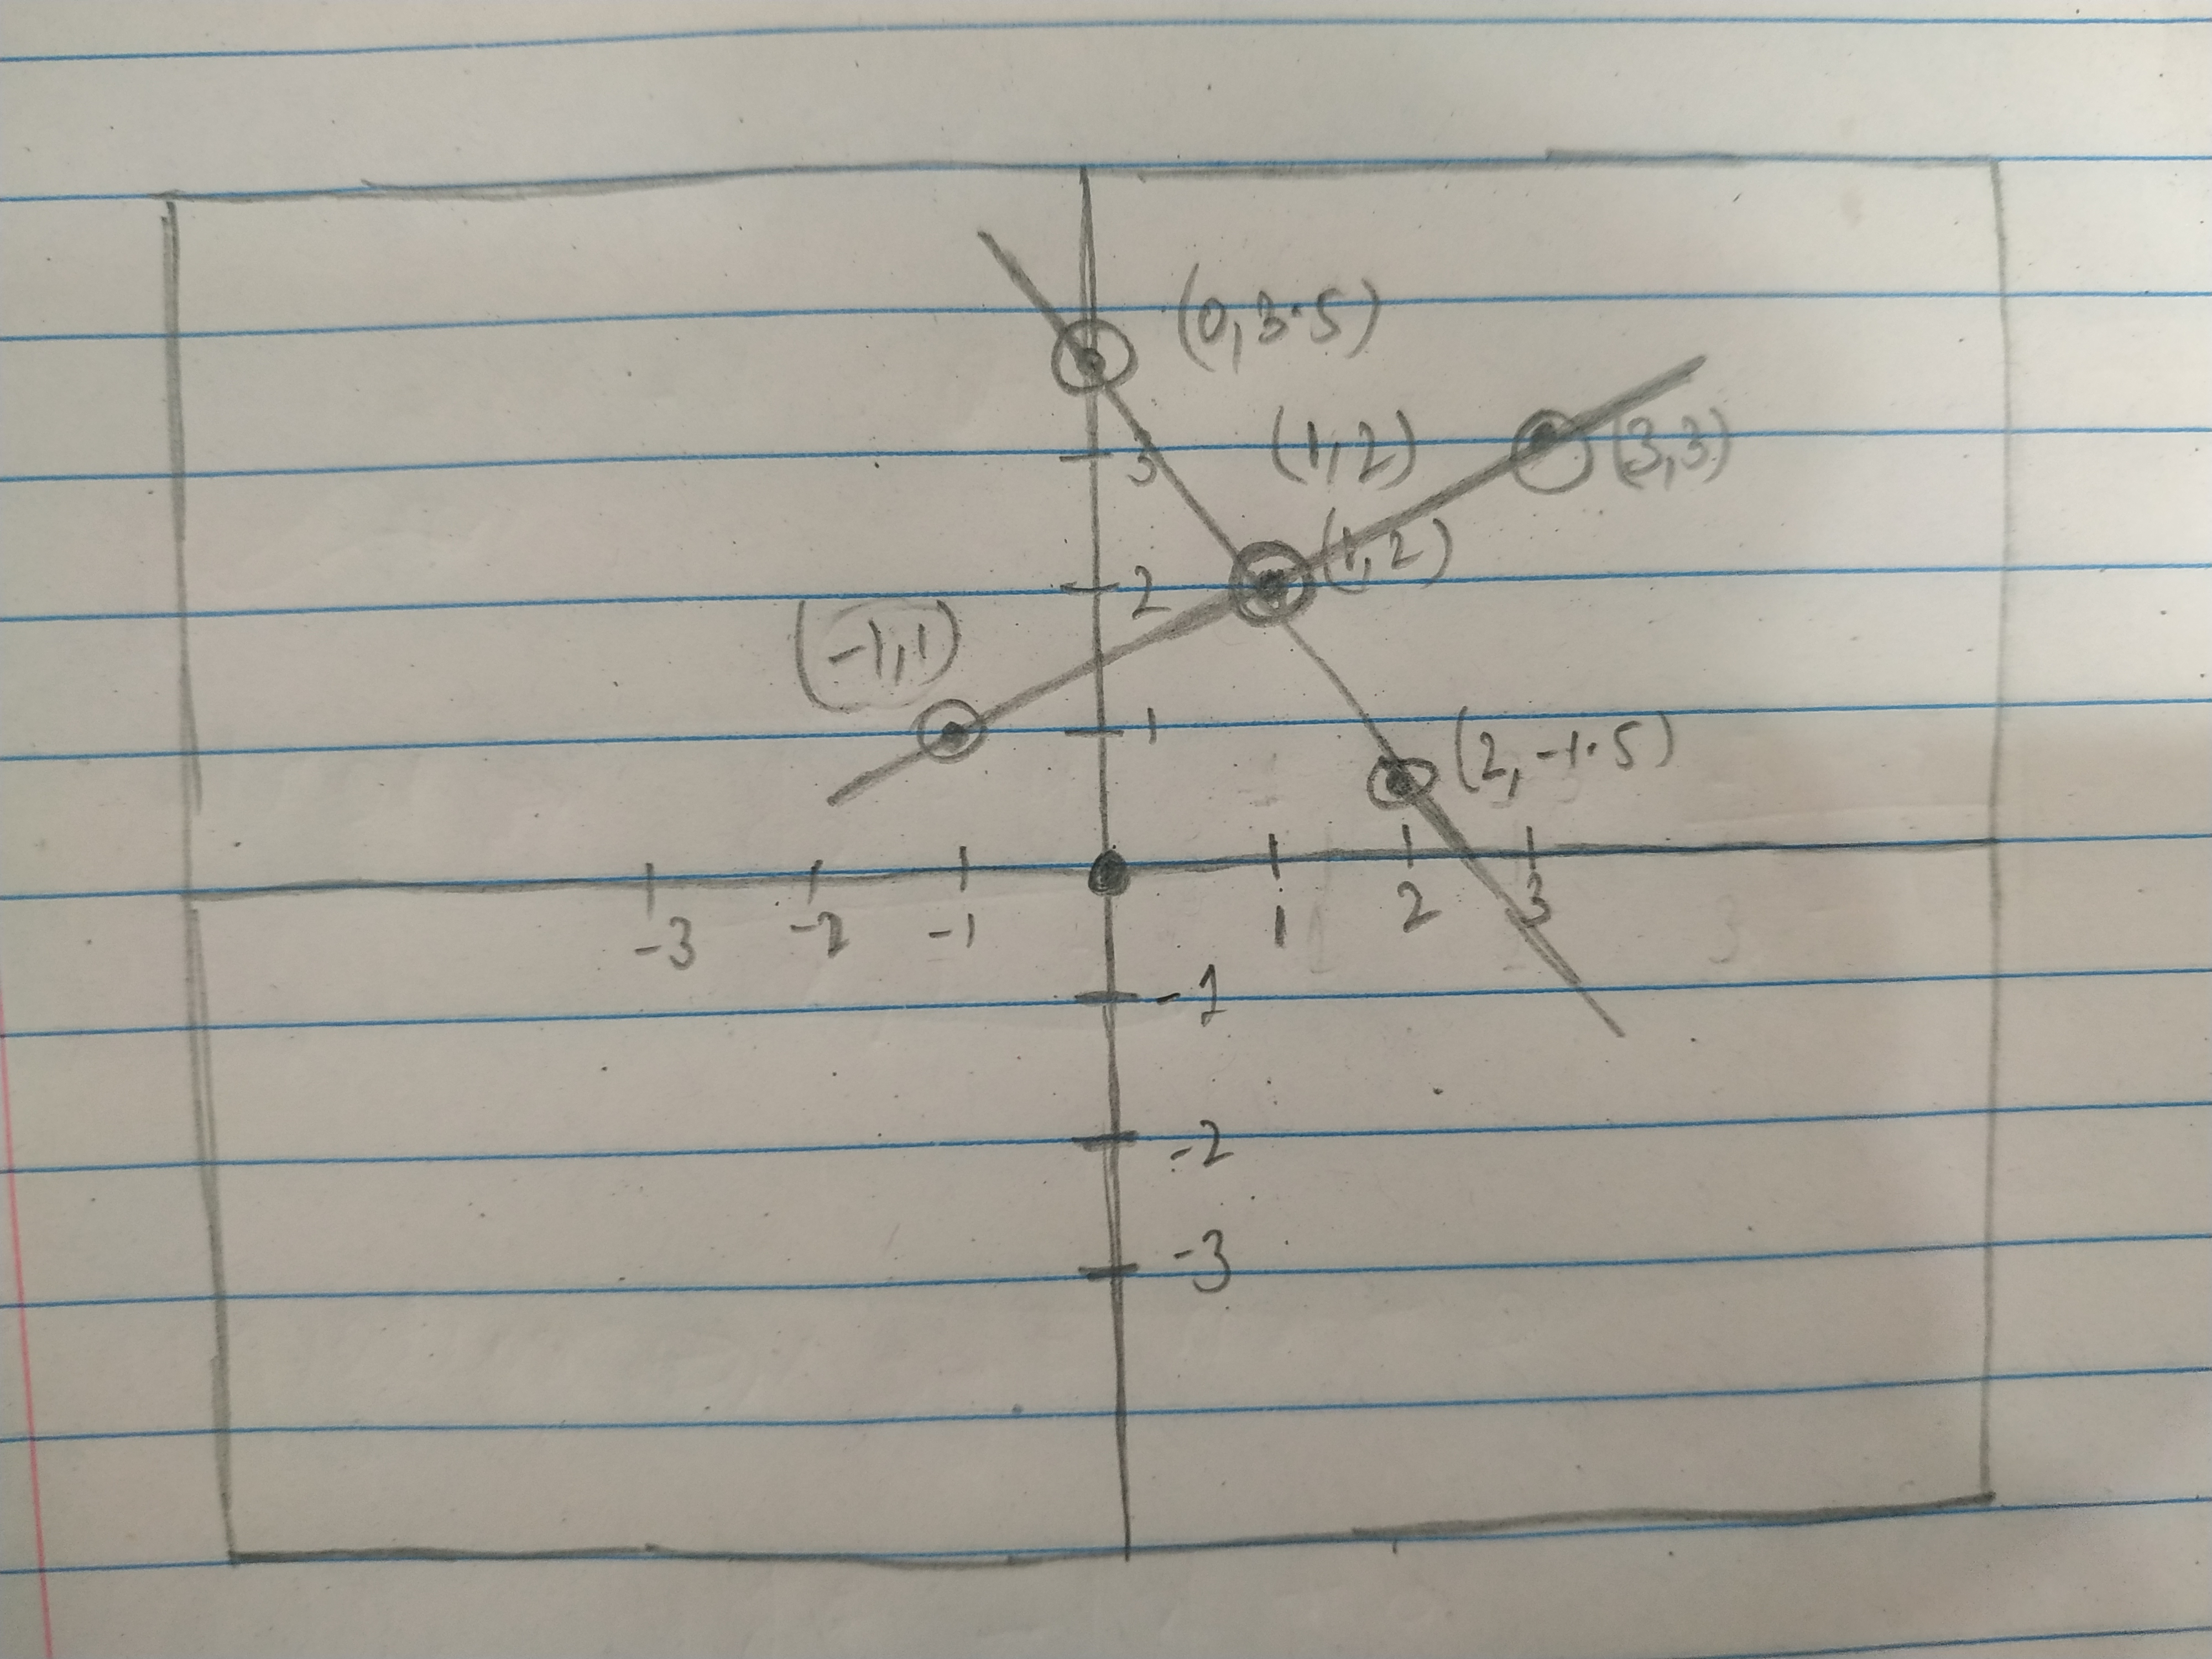 (0,3.5)
(1,2)
(3,3)
3
(1,2)
2
(-1,1)
1
(2,-1.5)
-3 -2 -1 1 2 3
-1
-2
-3